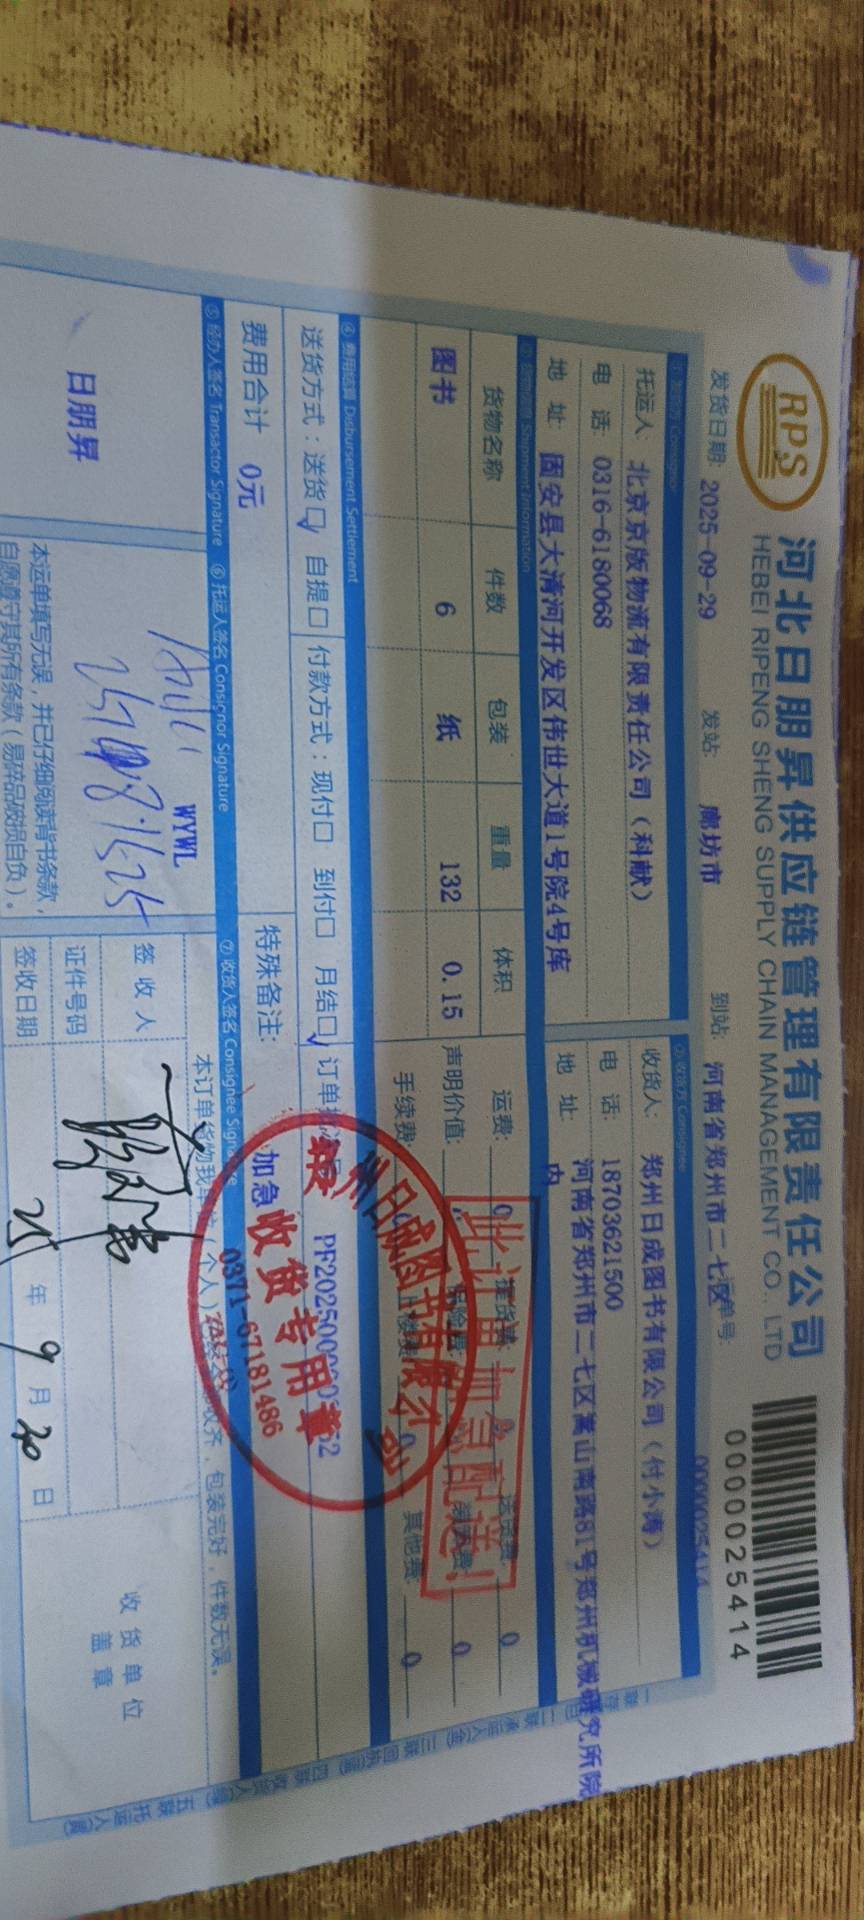 RPS
河北日朋昇供应链管理有限责任公司
HEBEI RIPENG SHENG SUPPLY CHAIN MANAGEMENT CO., LTD
0000025414
发货日期: 2025-09-29 发站: 廊坊市 到站: 河南省郑州市二七区 运单号: 0000025414
① 发货方 Consignor
② 收货方 Consignee
托运人: 北京京版物流有限责任公司（科献）
收货人: 郑州日成图书有限公司（付小涛）
电 话: 0316-6180068
电 话: 18703621500
地 址: 固安县大清河开发区伟世大道1号院4号库
地 址: 河南省郑州市二七区嵩山南路81号郑州机械研究所院内
Shipment Information
货物名称 件数 包装 重量 体积
图书 6 纸 132 0.15
运费: 0 提货费: 送货费: 0
声明价值: 保险费: 0
手续费: 0 其他费: 0
此订单加急配送!
④ 费用结算 Disbursement Settlement
送货方式：送货☑ 自提☐ 付款方式：现付☐ 到付☐ 月结☑
费用合计 0元
特殊备注: 加急
郑州日成图书有限公司
收货专用章
0371-67181486
⑤ 经办人签名 Transactor Signature
⑥ 托运人签名 Consignor Signature
⑦ 收货人签名 Consignee Signature
日朋昇
WYWL
本运单填写无误，并已仔细阅读背书条款，
自愿遵守其所有条款（易碎品破损自负）。
收齐，包装完好，件数无误。
签 收 人
证件号码
签收日期 25 年 9 月 30 日
收 货 单 位
盖 章